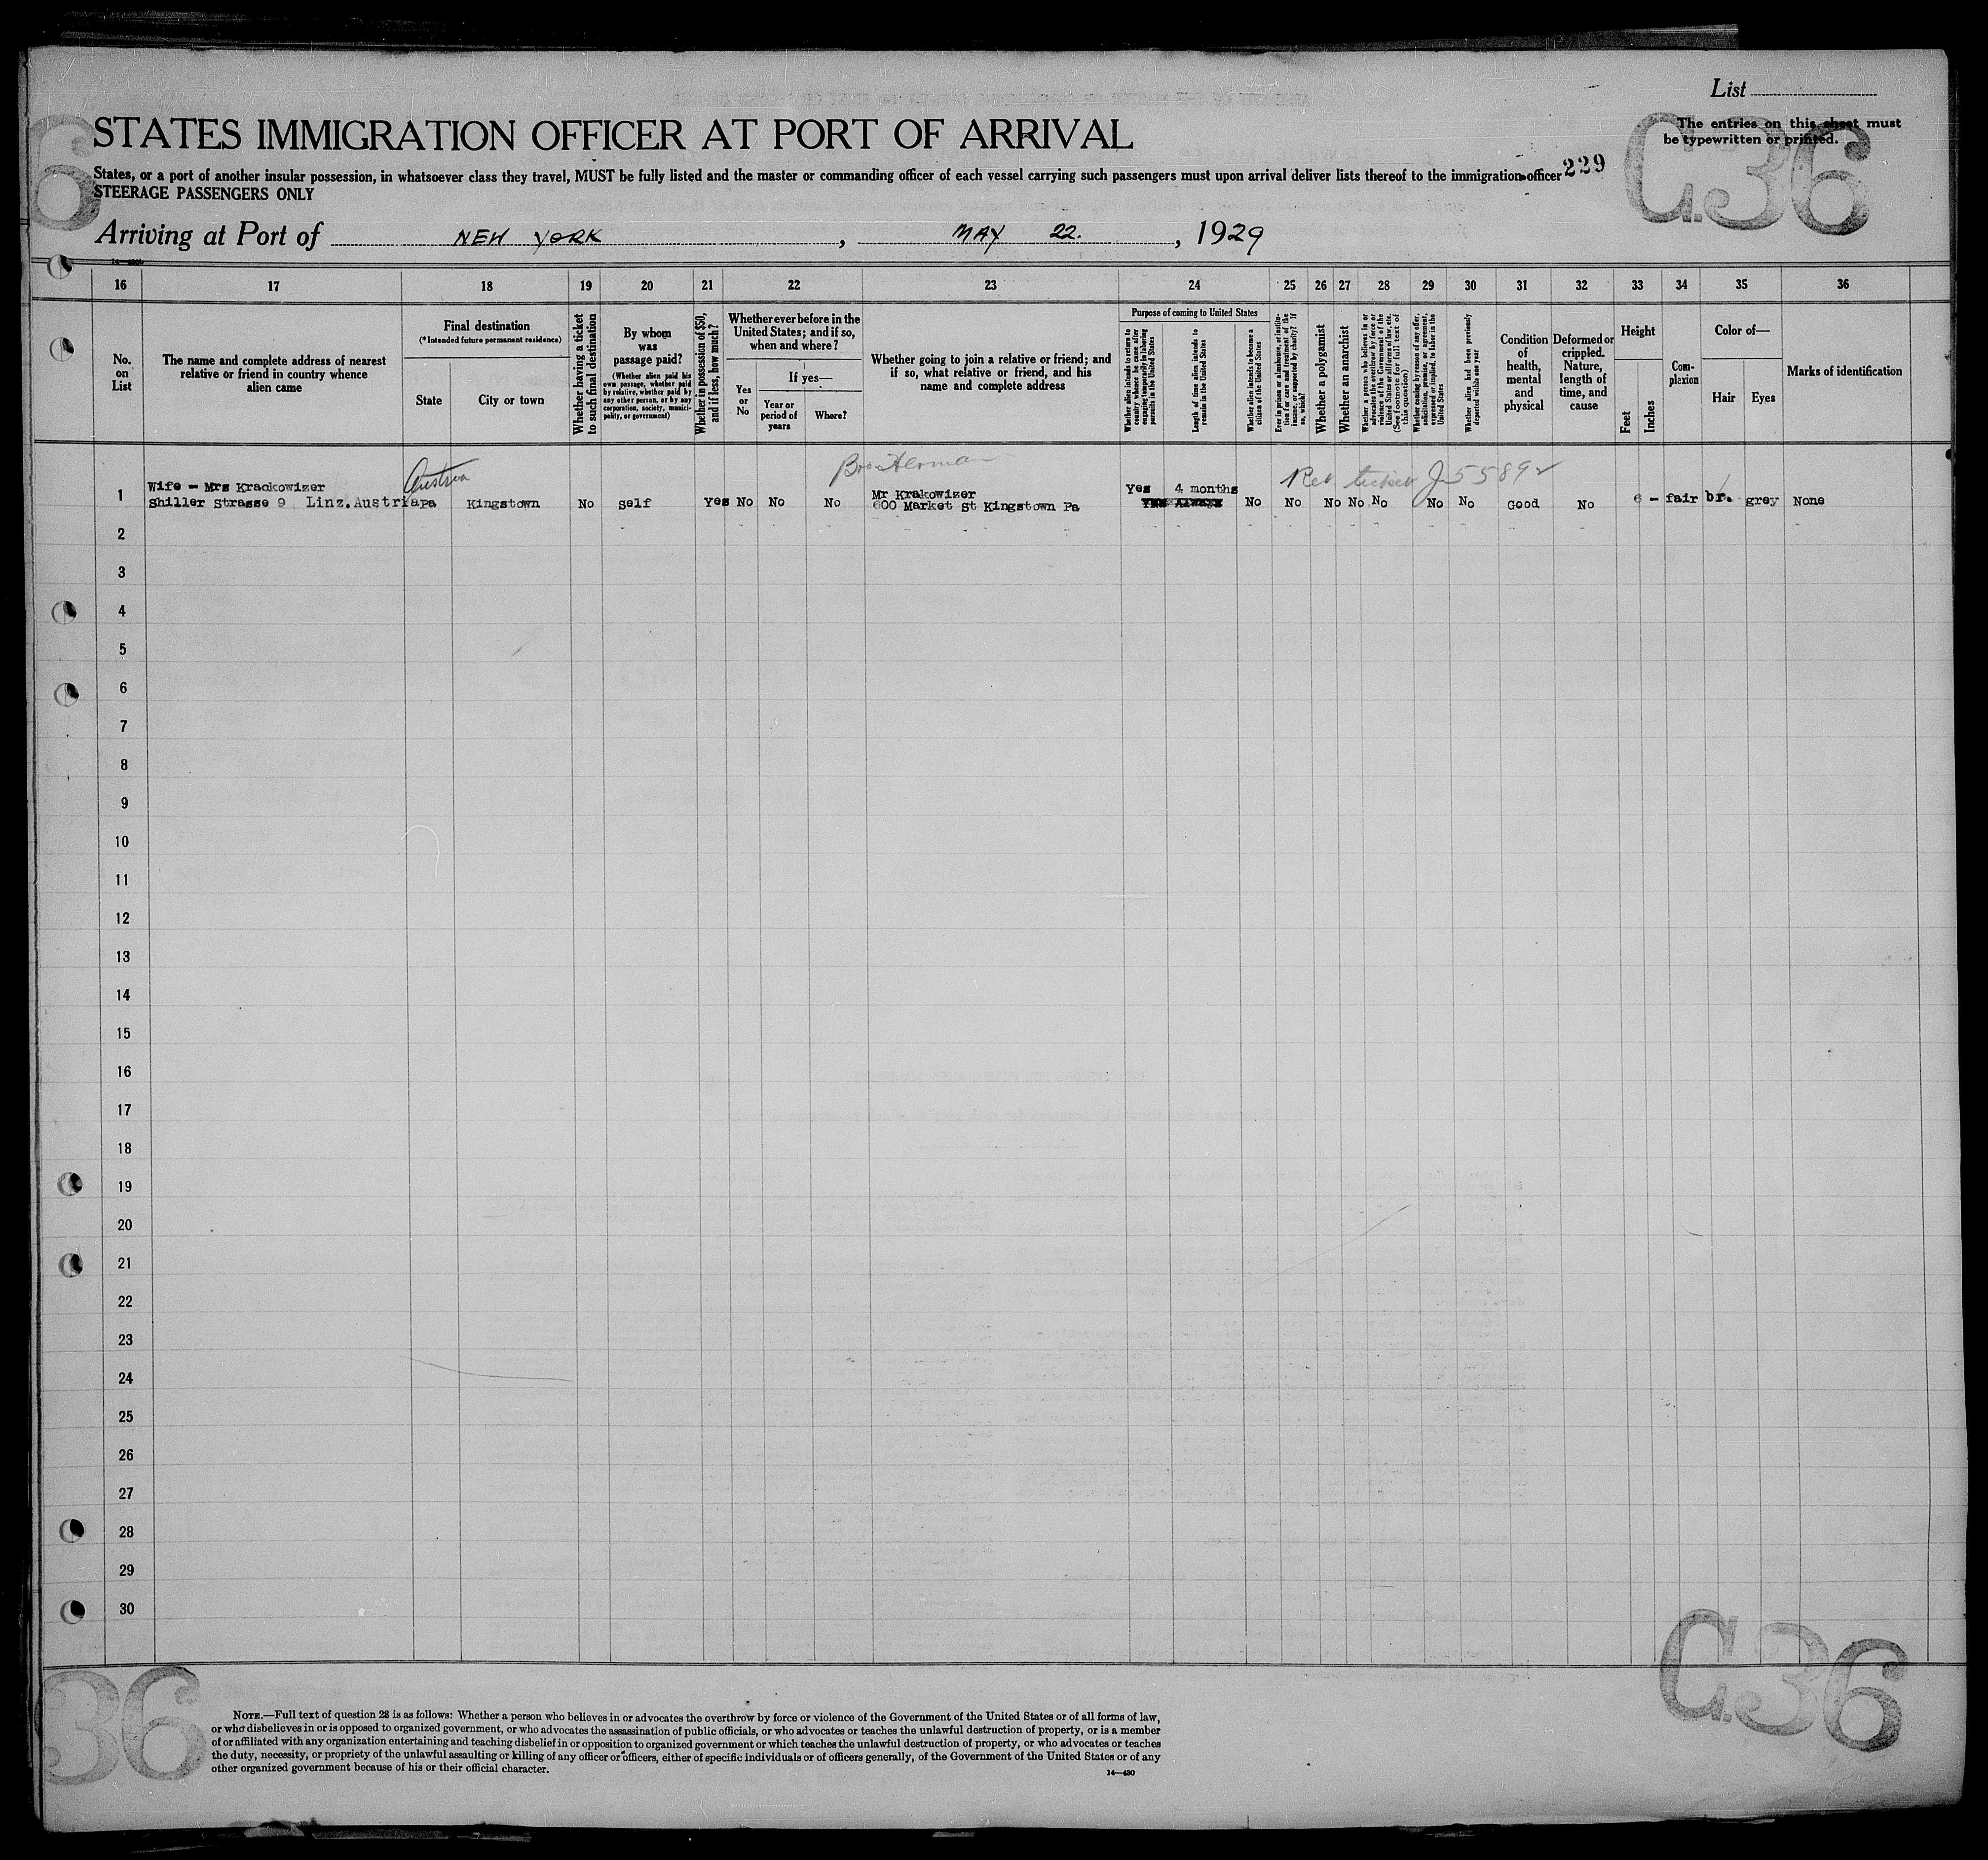 List
The entries on this sheet must
be typewritten or printed.
G.36
6
STATES IMMIGRATION OFFICER AT PORT OF ARRIVAL
229
States, or a port of another insular possession, in whatsoever class they travel, MUST be fully listed and the master or commanding officer of each vessel carrying such passengers must upon arrival deliver lists thereof to the immigration officer
STEERAGE PASSENGERS ONLY
Arriving at Port of NEW YORK, MAY 22., 1929
16 17 18 19 20 21 22 23 24 25 26 27 28 29 30 31 32 33 34 35 36
No. on List
The name and complete address of nearest
relative or friend in country whence
alien came
Final destination
(*Intended future permanent residence)
State
City or town
Whether having a ticket
to such final destination
By whom
was
passage paid?
(Whether alien paid his
own passage, whether paid
by relative, whether paid by
any other person, or by any
corporation, society, munici-
pality, or government)
Whether in possession of $50,
and if less, how much?
Whether ever before in the
United States; and if so,
when and where?
Yes
or
No
If yes—
Year or
period of
years
Where?
Whether going to join a relative or friend; and
if so, what relative or friend, and his
name and complete address
Purpose of coming to United States
Whether alien intends to return to
country whence he came after
engaging temporarily in laboring
pursuits in the United States
Length of time alien intends to
remain in the United States
Whether alien intends to become a
citizen of the United States
Ever in prison or almshouse, or institu-
tion for care and treatment of the
insane, or supported by charity? If
so, which?
Whether a polygamist
Whether an anarchist
Whether a person who believes in or
advocates the overthrow by force or
violence of the Government of the
United States or all forms of law, etc.
(See footnote for full text of
this question)
Whether coming by reason of any offer,
solicitation, promise, or agreement,
expressed or implied, to labor in the
United States
Whether alien had been previously
deported within one year
Condition
of
health,
mental
and
physical
Deformed or
crippled.
Nature,
length of
time, and
cause
Height
Feet
Inches
Com-
plexion
Color of—
Hair
Eyes
Marks of identification
Austria
Bro Herman
Ret. ticket J 55892
Wife - Mrs Krackowizer
Yes 4 months
Mr Krakowizer
1 Shiller Strasse 9 Linz.Austria Pa Kingstown No self Yes No No No 600 Market St Kingstown Pa No No No No No No No Good No 6 - fair br. grey None
2
3
4
5
6
7
8
9
10
11
12
13
14
15
16
17
18
19
20
21
22
23
24
25
26
27
28
29
30
G.36
36
NOTE.—Full text of question 28 is as follows: Whether a person who believes in or advocates the overthrow by force or violence of the Government of the United States or of all forms of law,
or who disbelieves in or is opposed to organized government, or who advocates the assassination of public officials, or who advocates or teaches the unlawful destruction of property, or is a member
of or affiliated with any organization entertaining and teaching disbelief in or opposition to organized government or which teaches the unlawful destruction of property, or who advocates or teaches
the duty, necessity, or propriety of the unlawful assaulting or killing of any officer or officers, either of specific individuals or of officers generally, of the Government of the United States or of any
other organized government because of his or their official character.
14—430